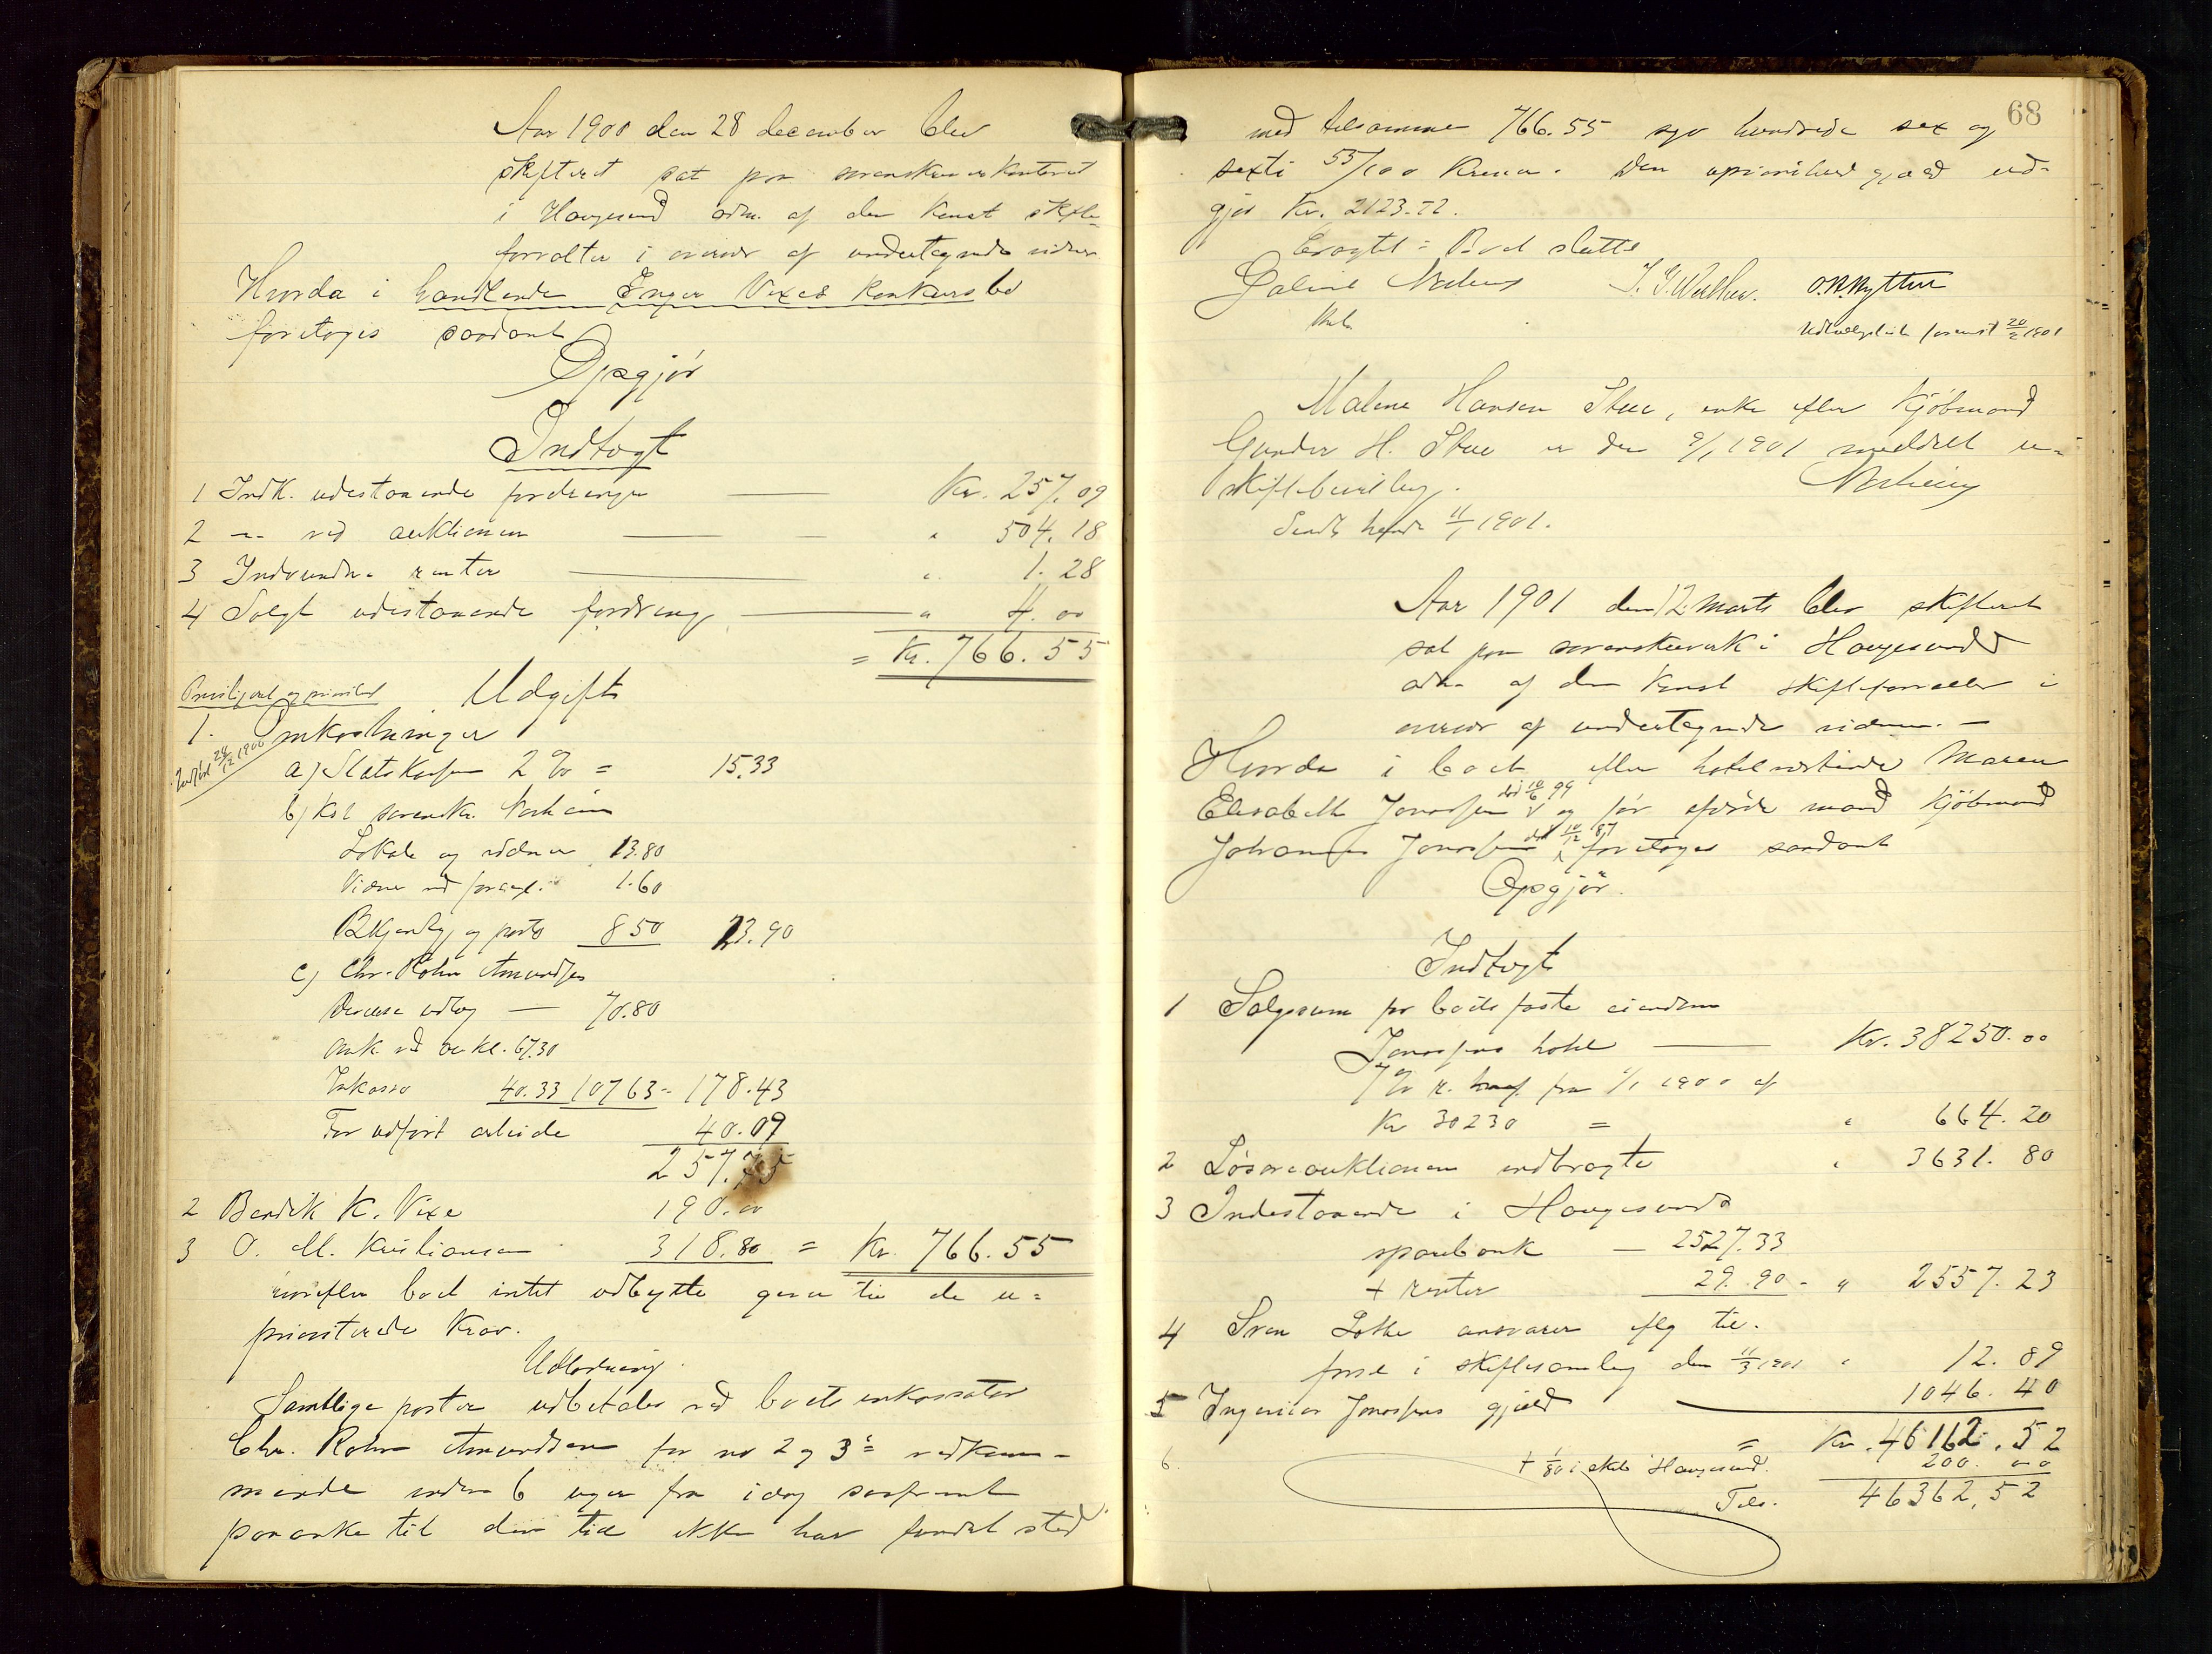 Aar 1900 den 28 december blev
skifteret sat paa sorenskriverkontoret
i Haugesund adm. af den konst. skifte-
forvalter i overvær af undertegnede vidner
Hvorda i handlende Enger Vixes konkursbo
foretoges saadant
Opgjör
Indtægt
1 Indk. udestaaende fordringer Kr. 257.09
2 -"- ved auktionen " 504.18
3 Indvundne renter " 1.28
4 Solgt udestaaende fordring " 4.00
= Kr. 766.55
Udgift
1. Omkostninger
a) Statskassen 2 % = 15.33
b) Kst sorenskr.
Lokale og vidner 13.80
Vidner ved 1.60
Bekjendtg. og porto 8 50 23.90
c) Chr. Rohn Amundsen
Diverse udlæg — 70.80
ved aukt. 67.30
Inkasso 40.33 107 63 = 178.43
For udfört arbeide 40.09
257.75
2 Bendik K. Vixe 190.00
3 O. M. Kristiansen 318.80 = Kr. 766.55
hvorefter boet intet udbytte giver til de u=
prioriterede krav.
Udlodning.
Samtlige poster udbetales ved boets inkassator
Chr. Rohn Amundsen for no 2 og 3s vedkom-
mende inden 6 uger fra idag saafremt
paaanke til den tid ikke har fundet sted
68
med tilsammen 766.55 syv hundrede sex og
sexti 55/100 Kroner. Den uprioriterede gjæld ud-
gjör Kr. 2123.72.
Boet sluttet
O.N.Nytten
20/2 1901
Malene Hansen Stue, enke efter kjöbmand
Gunder H. Stue er den 9/1 1901 meddelt u-
skiftebevilling.
Sendt hende 11/1 1901.
Aar 1901 den 12 marts blev skifteret
sat paa sorenskriverk. i Haugesund
adm. af den konst. skifteforvalter i
overvær af undertegnede vidner. —
Hvorda i boet efter hotelværtinde Maren
Elisabeth Jonassen död 10/6 99 og för afdöde mand kjöbmand
Johannes Jonassen död 10/12 87 foretoges saadant
Opgjör.
Indtægt
1 Salgssum for boets faste eiendom
Jonassens hotel — Kr. 38250.00
fra 1/1 1900 af
Kr 30230 = " 664.20
2 Lösöreauktionen indbragte " 3631.80
3 Indestaaende i Haugesunds
sparebank — 2527.33
+ renter 29.90 = " 2557.23
4 Sven Lothe ansvarer iflg til-
försel i skiftesamling den 11/3 1901 " 12.89
5 Ingeniör Jonassens gjæld 1046.40
= Kr. 46162.52
6. + 1/80 i Haugesund. 200.00
Tils. 46362,52